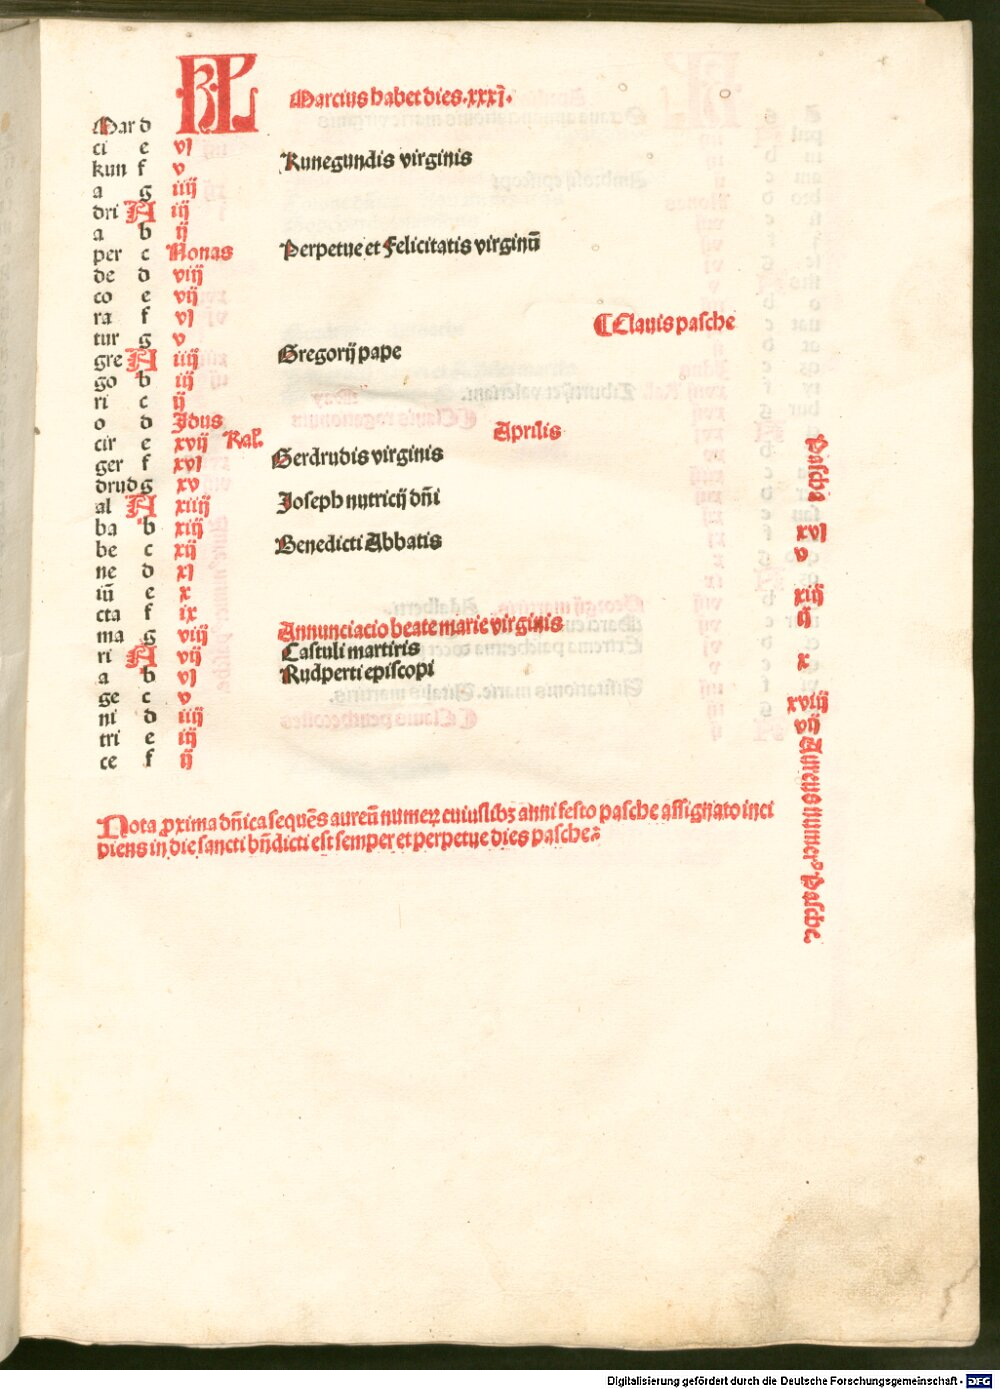 KL Marcius habet dies .xxxī.
Mar d
ci e vj
kun f v Kunegundis virginis
a g iiij
dri A iij
a b ij
per c Nonas Perpetue et Felicitatis virginū
de d viij
co e vij
ra f vj
tur g v ¶Clauis pasche
gre A iiij Gregorij pape
go b iij
ri c ij
o d Idus
cir e xvij Kal'. Aprilis
ger f xvj Gerdrudis virginis
drud g xv
al A xiiij Joseph nutricij dñi
ba b xiij
be c xij Benedicti Abbatis
ne d xj
iū e x
cta f ix
ma g viij Annunciacio beate marie virginis
ri A vij Castuli martiris
a b vj Rudperti episcopi
ge c v
ni d iiij
tri e iij
ce f ij
Pascha
xvj
v
xiij
ij
x
xviij
vij
Aureus numerꝰ Pasche.
Nota ꝓxima dñica sequēs aureū numeꝝ cuiuslibꝫ anni festo pasche assignato inci
diens in die sancti bñdicti est semper et perpetue dies pasche
Digitalisierung gefördert durch die Deutsche Forschungsgemeinschaft - DFG